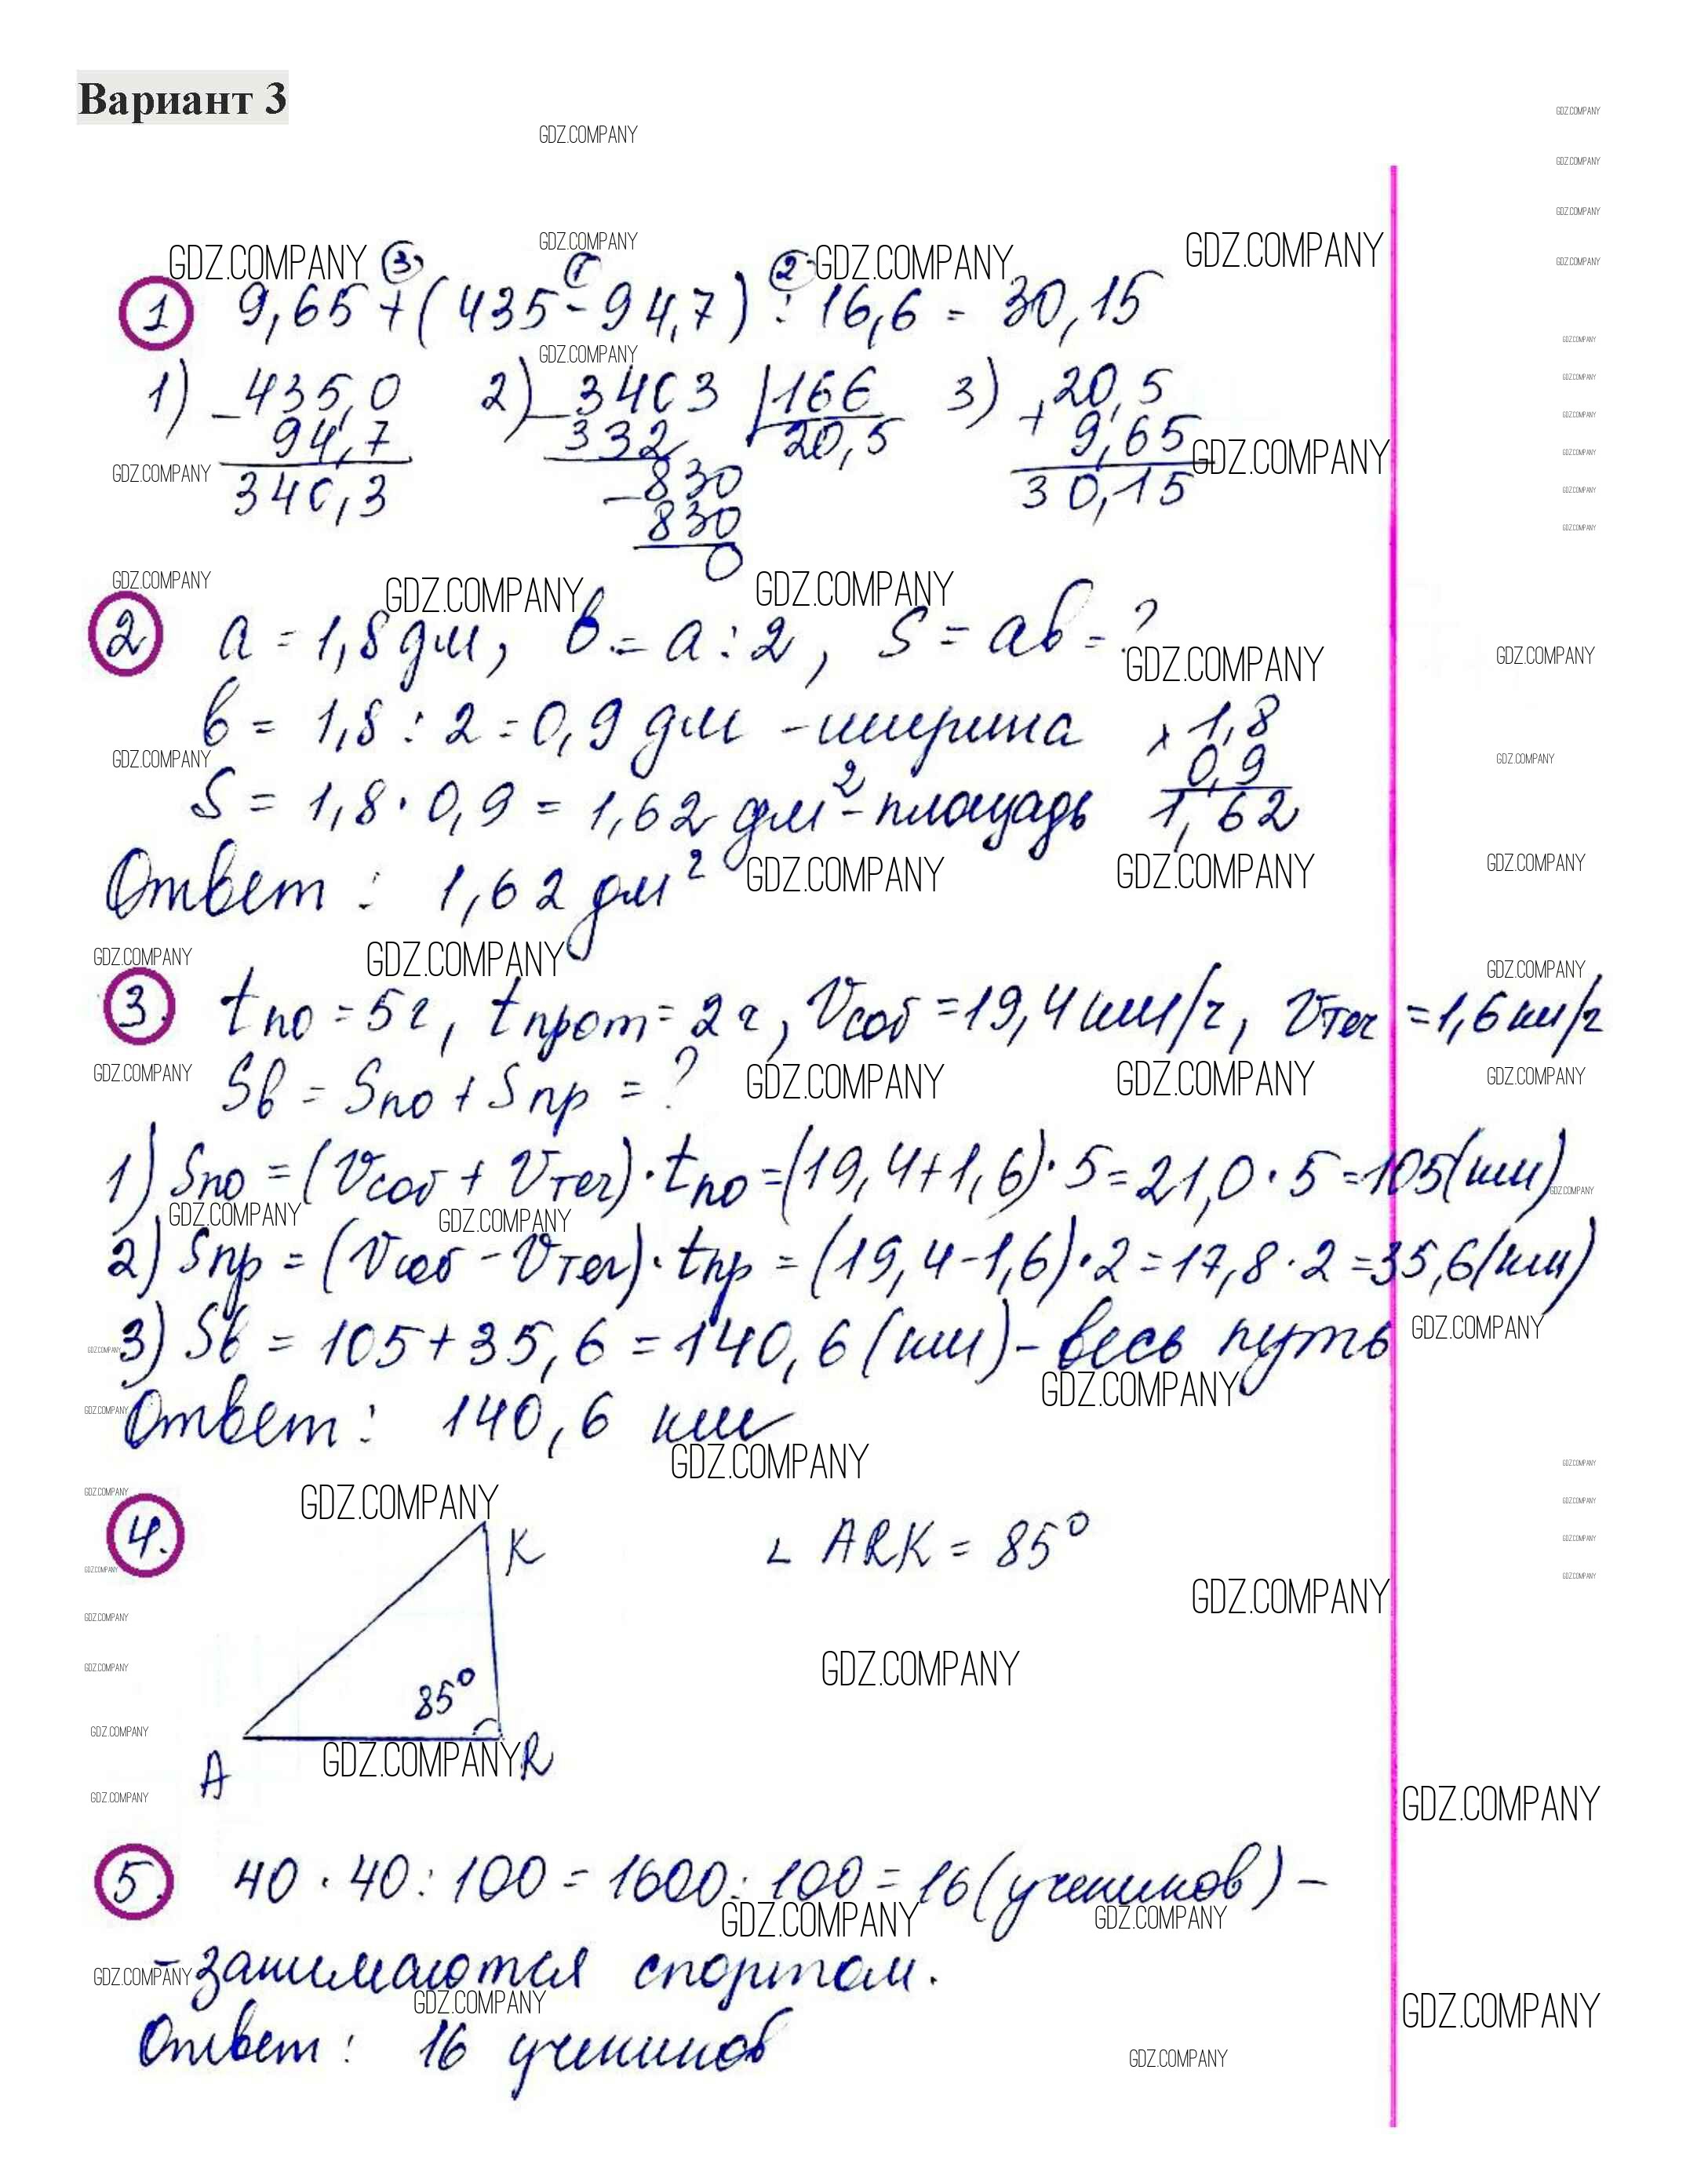 Вариант 3
GDZ.COMPANY
1 9,65 + (435 - 94,7) : 16,6 = 30,15
3 1 2
1) 435,0 2) 3403 |166 3) 20,5
- 94,7 - 332 20,5 + 9,65
340,3 - 830 30,15
830
0
2 a = 1,8 дм, в = a : 2, S = aв = ?
в = 1,8 : 2 = 0,9 дм - ширина × 1,8
0,9
S = 1,8 · 0,9 = 1,62 дм² - площадь 1,62
Ответ : 1,62 дм²
3. tпо = 5ч, tпрот = 2ч, Vсоб = 19,4 км/ч, Vтеч = 1,6 км/ч
Sв = Sпо + Sпр = ?
1) Sпо = (Vсоб + Vтеч) · tпо = (19,4+1,6) · 5 = 21,0 · 5 = 105 (км)
2) Sпр = (Vсоб - Vтеч) · tпр = (19,4-1,6) · 2 = 17,8 · 2 = 35,6 (км)
3) Sв = 105 + 35,6 = 140,6 (км) - весь путь
Ответ : 140,6 км
4. K ∠ ARK = 85°
85°
A R
5. 40 · 40 : 100 = 1600 : 100 = 16 (учеников) -
- занимаются спортом.
Ответ : 16 учеников